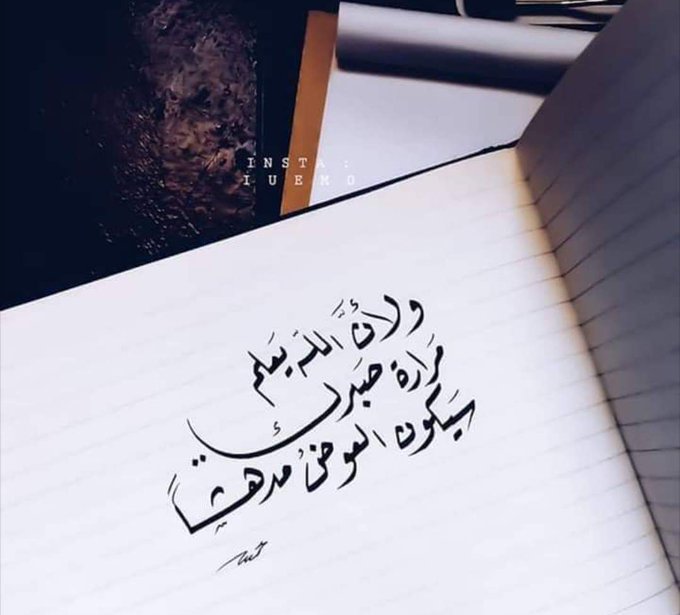 INSTA :
IUEMO
ولأنَّ اللّه يَعلم
مَرارة صَبرك ..
سَيكون العوضُ مدهشاً